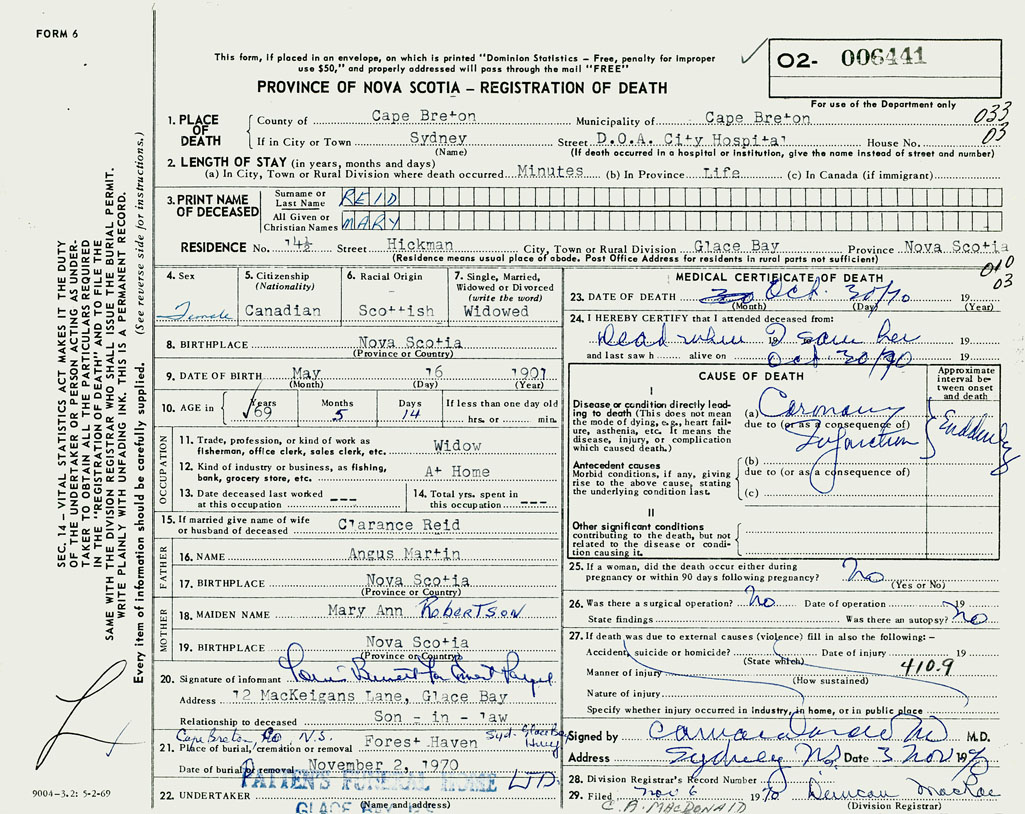 FORM 6
This form, if placed in an envelope, on which is printed "Dominion Statistics – Free, penalty for improper
use $50," and properly addressed will pass through the mail "FREE"
PROVINCE OF NOVA SCOTIA – REGISTRATION OF DEATH
O2- 006441
For use of the Department only
033
03
1. PLACE OF DEATH
County of Cape Breton Municipality of Cape Breton
If in City or Town Sydney Street D.O.A. City Hospital House No.
(Name) (If death occurred in a hospital or institution, give the name instead of street and number)
2. LENGTH OF STAY (in years, months and days)
(a) In City, Town or Rural Division where death occurred Minutes (b) In Province Life (c) In Canada (if immigrant)
3. PRINT NAME OF DECEASED
Surname or Last Name REID
All Given or Christian Names MARY
RESIDENCE No. 14½ Street Hickman City, Town or Rural Division Glace Bay Province Nova Scotia
(Residence means usual place of abode. Post Office Address for residents in rural parts not sufficient)
010
03
4. Sex Female
5. Citizenship (Nationality) Canadian
6. Racial Origin Scottish
7. Single, Married, Widowed or Divorced (write the word) Widowed
8. BIRTHPLACE Nova Scotia
(Province or Country)
9. DATE OF BIRTH May 16 1901
(Month) (Day) (Year)
10. AGE in Years 69 Months 5 Days 14 If less than one day old hrs. or min.
OCCUPATION
11. Trade, profession, or kind of work as fisherman, office clerk, sales clerk, etc. Widow
12. Kind of industry or business, as fishing, bank, grocery store, etc. At Home
13. Date deceased last worked at this occupation ---
14. Total yrs. spent in this occupation ---
15. If married give name of wife or husband of deceased Clarance Reid
FATHER
16. NAME Angus Martin
17. BIRTHPLACE Nova Scotia
(Province or Country)
MOTHER
18. MAIDEN NAME Mary Ann ROBERTSON
19. BIRTHPLACE Nova Scotia
(Province or Country)
20. Signature of informant
Address 12 MacKeigans Lane, Glace Bay
Relationship to deceased Son - in - law
Cape Breton Co N.S.
21. Place of burial, cremation or removal Forest Haven Syd. Glace Bay Hwy
Date of burial or removal November 2, 1970
22. UNDERTAKER PATTEN'S FUNERAL HOME LTD.
GLACE BAY
(Name and address)
MEDICAL CERTIFICATE OF DEATH
23. DATE OF DEATH Oct. 30/70 19
(Month) (Day) (Year)
24. I HEREBY CERTIFY that I attended deceased from:
Dead when I saw her 19
and last saw h alive on Oct 30/70 19
CAUSE OF DEATH
Approximate interval between onset and death
I
Disease or condition directly leading to death (This does not mean the mode of dying, e.g., heart failure, asthenia, etc. It means the disease, injury, or complication which caused death.)
(a) Coronary
due to (or as a consequence of)
Infarction
Suddenly
Antecedent causes
Morbid conditions, if any, giving rise to the above cause, stating the underlying condition last.
(b)
due to (or as a consequence of)
(c)
II
Other significant conditions contributing to the death, but not related to the disease or condition causing it.
25. If a woman, did the death occur either during pregnancy or within 90 days following pregnancy? No
(Yes or No)
26. Was there a surgical operation? No Date of operation 19
State findings Was there an autopsy? No
27. If death was due to external causes (violence) fill in also the following:–
Accident, suicide or homicide? Date of injury 19
(State which)
410.9
Manner of injury
(How sustained)
Nature of injury
Specify whether injury occurred in industry, in home, or in public place
Signed by M.D.
Address Sydney NS Date 3 Nov 19
28. Division Registrar's Record Number
29. Filed Nov 6 1970 Duncan MacRae
C. A. MACDONALD (Division Registrar)
SEC. 14 – VITAL STATISTICS ACT MAKES IT THE DUTY
OF THE UNDERTAKER OR PERSON ACTING AS UNDER-
TAKER TO OBTAIN ALL THE PARTICULARS REQUIRED
IN THE "REGISTRATION OF DEATH" AND TO FILE THE
SAME WITH THE DIVISION REGISTRAR WHO SHALL ISSUE THE BURIAL PERMIT.
WRITE PLAINLY WITH UNFADING INK. THIS IS A PERMANENT RECORD.
Every item of information should be carefully supplied. (See reverse side for instructions.)
9004-3.2: 5-2-69